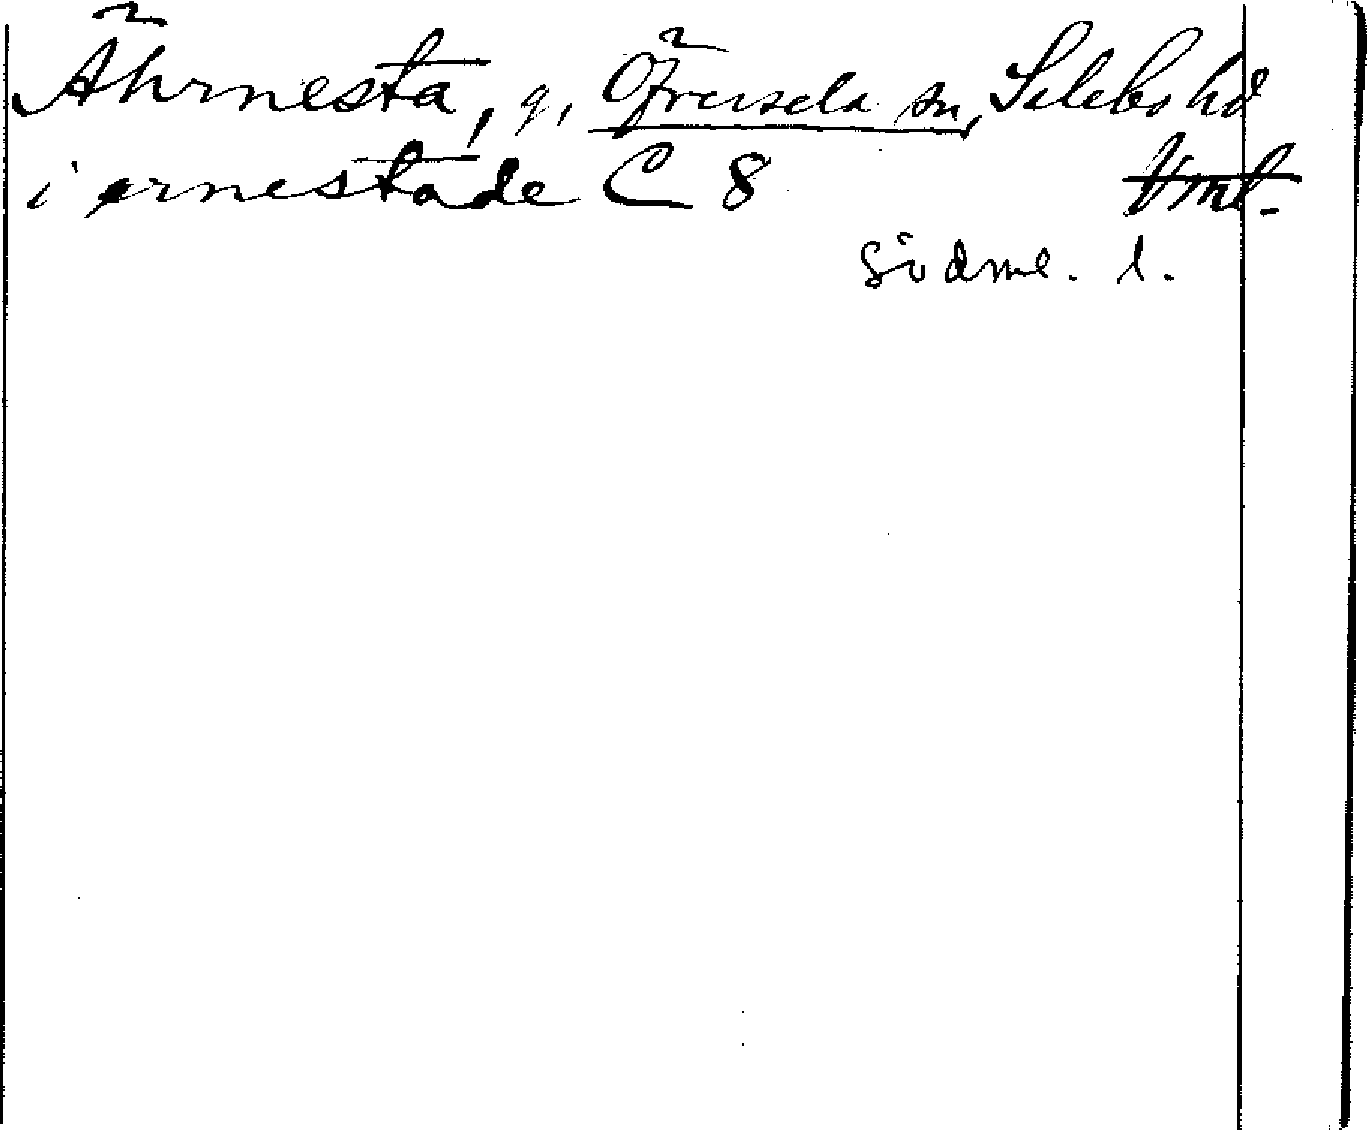 Ährnesta, g, Öfversela sn, Selebo hd
i ernestade C 8 Vml.
Södml. l.